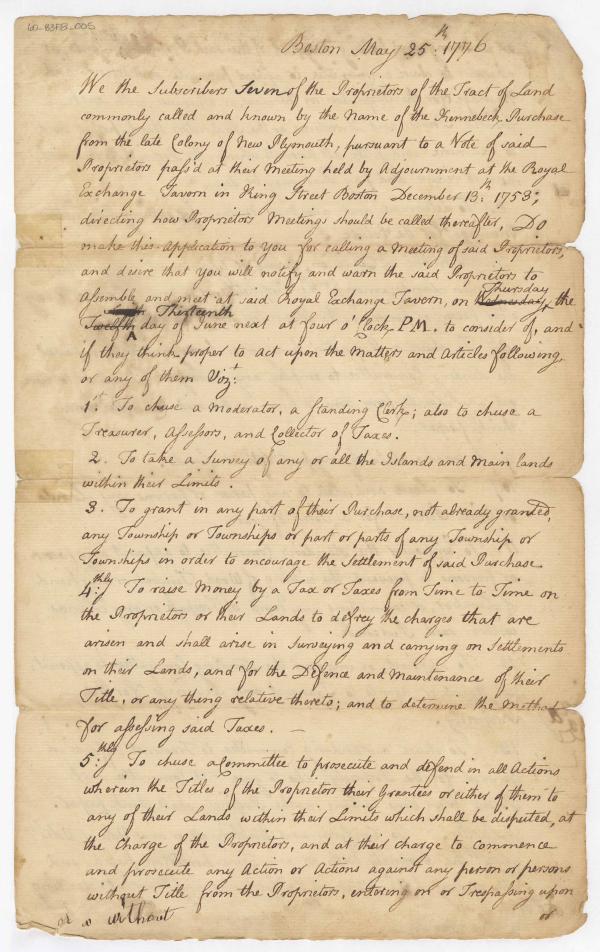 60-83FB_005
Boston May 25th. 1776
We the Subscribers Seven of the Proprietors of the Tract of Land
commonly called and known by the Name of the Kennebeck Purchase
from the late Colony of New Plymouth, pursuant to a Vote of said
Proprietors pass'd at their Meeting held by Adjournment at the Royal
Exchange Tavern in King Street Boston December 13th. 1753;
directing how Proprietors Meetings should be called thereafter, Do
make this application to you for calling a Meeting of said Proprietors,
and desire that you will notify and warn the said Proprietors to
Thursday
Assemble and meet at said Royal Exchange Tavern, on Wednesday, the
Thirteenth
Twelfth day of June next at four o'Clock PM. to consider of, and
if they think proper to act upon the Matters and Articles following,
or any of them Vizt:
1st. To chuse a Moderator, a Standing Clerk; also to chuse a
Treasurer, Assessors, and Collector of Taxes.
2. To take a Survey of any or all the Islands and Main lands
within their Limits.
3. To grant in any part of their Purchase, not already granted,
any Township or Townships or part or parts of any Township or
Townships in order to encourage the Settlement of said Purchase
4:thly To raise Money by a Tax or Taxes from Time to Time on
the Proprietors or their Lands to defrey the charges that are
arisen and shall arise in Surveying and carrying on Settlements
on their Lands, and for the Defence and Maintenance of their
Title, or any thing relative thereto; and to determine the Method
for assessing said Taxes. —
5:thly To chuse a Committee to prosecute and defend in all Actions
wherein the Titles of the Proprietors their Grantees or either of them to
any of their Lands within their Limits which shall be disputed, at
the Charge of the Proprietors, and at their charge to commence
and prosecute any Action or Actions against any person or persons
without Title from the Proprietors, entering on or Trespassing upon
or
without